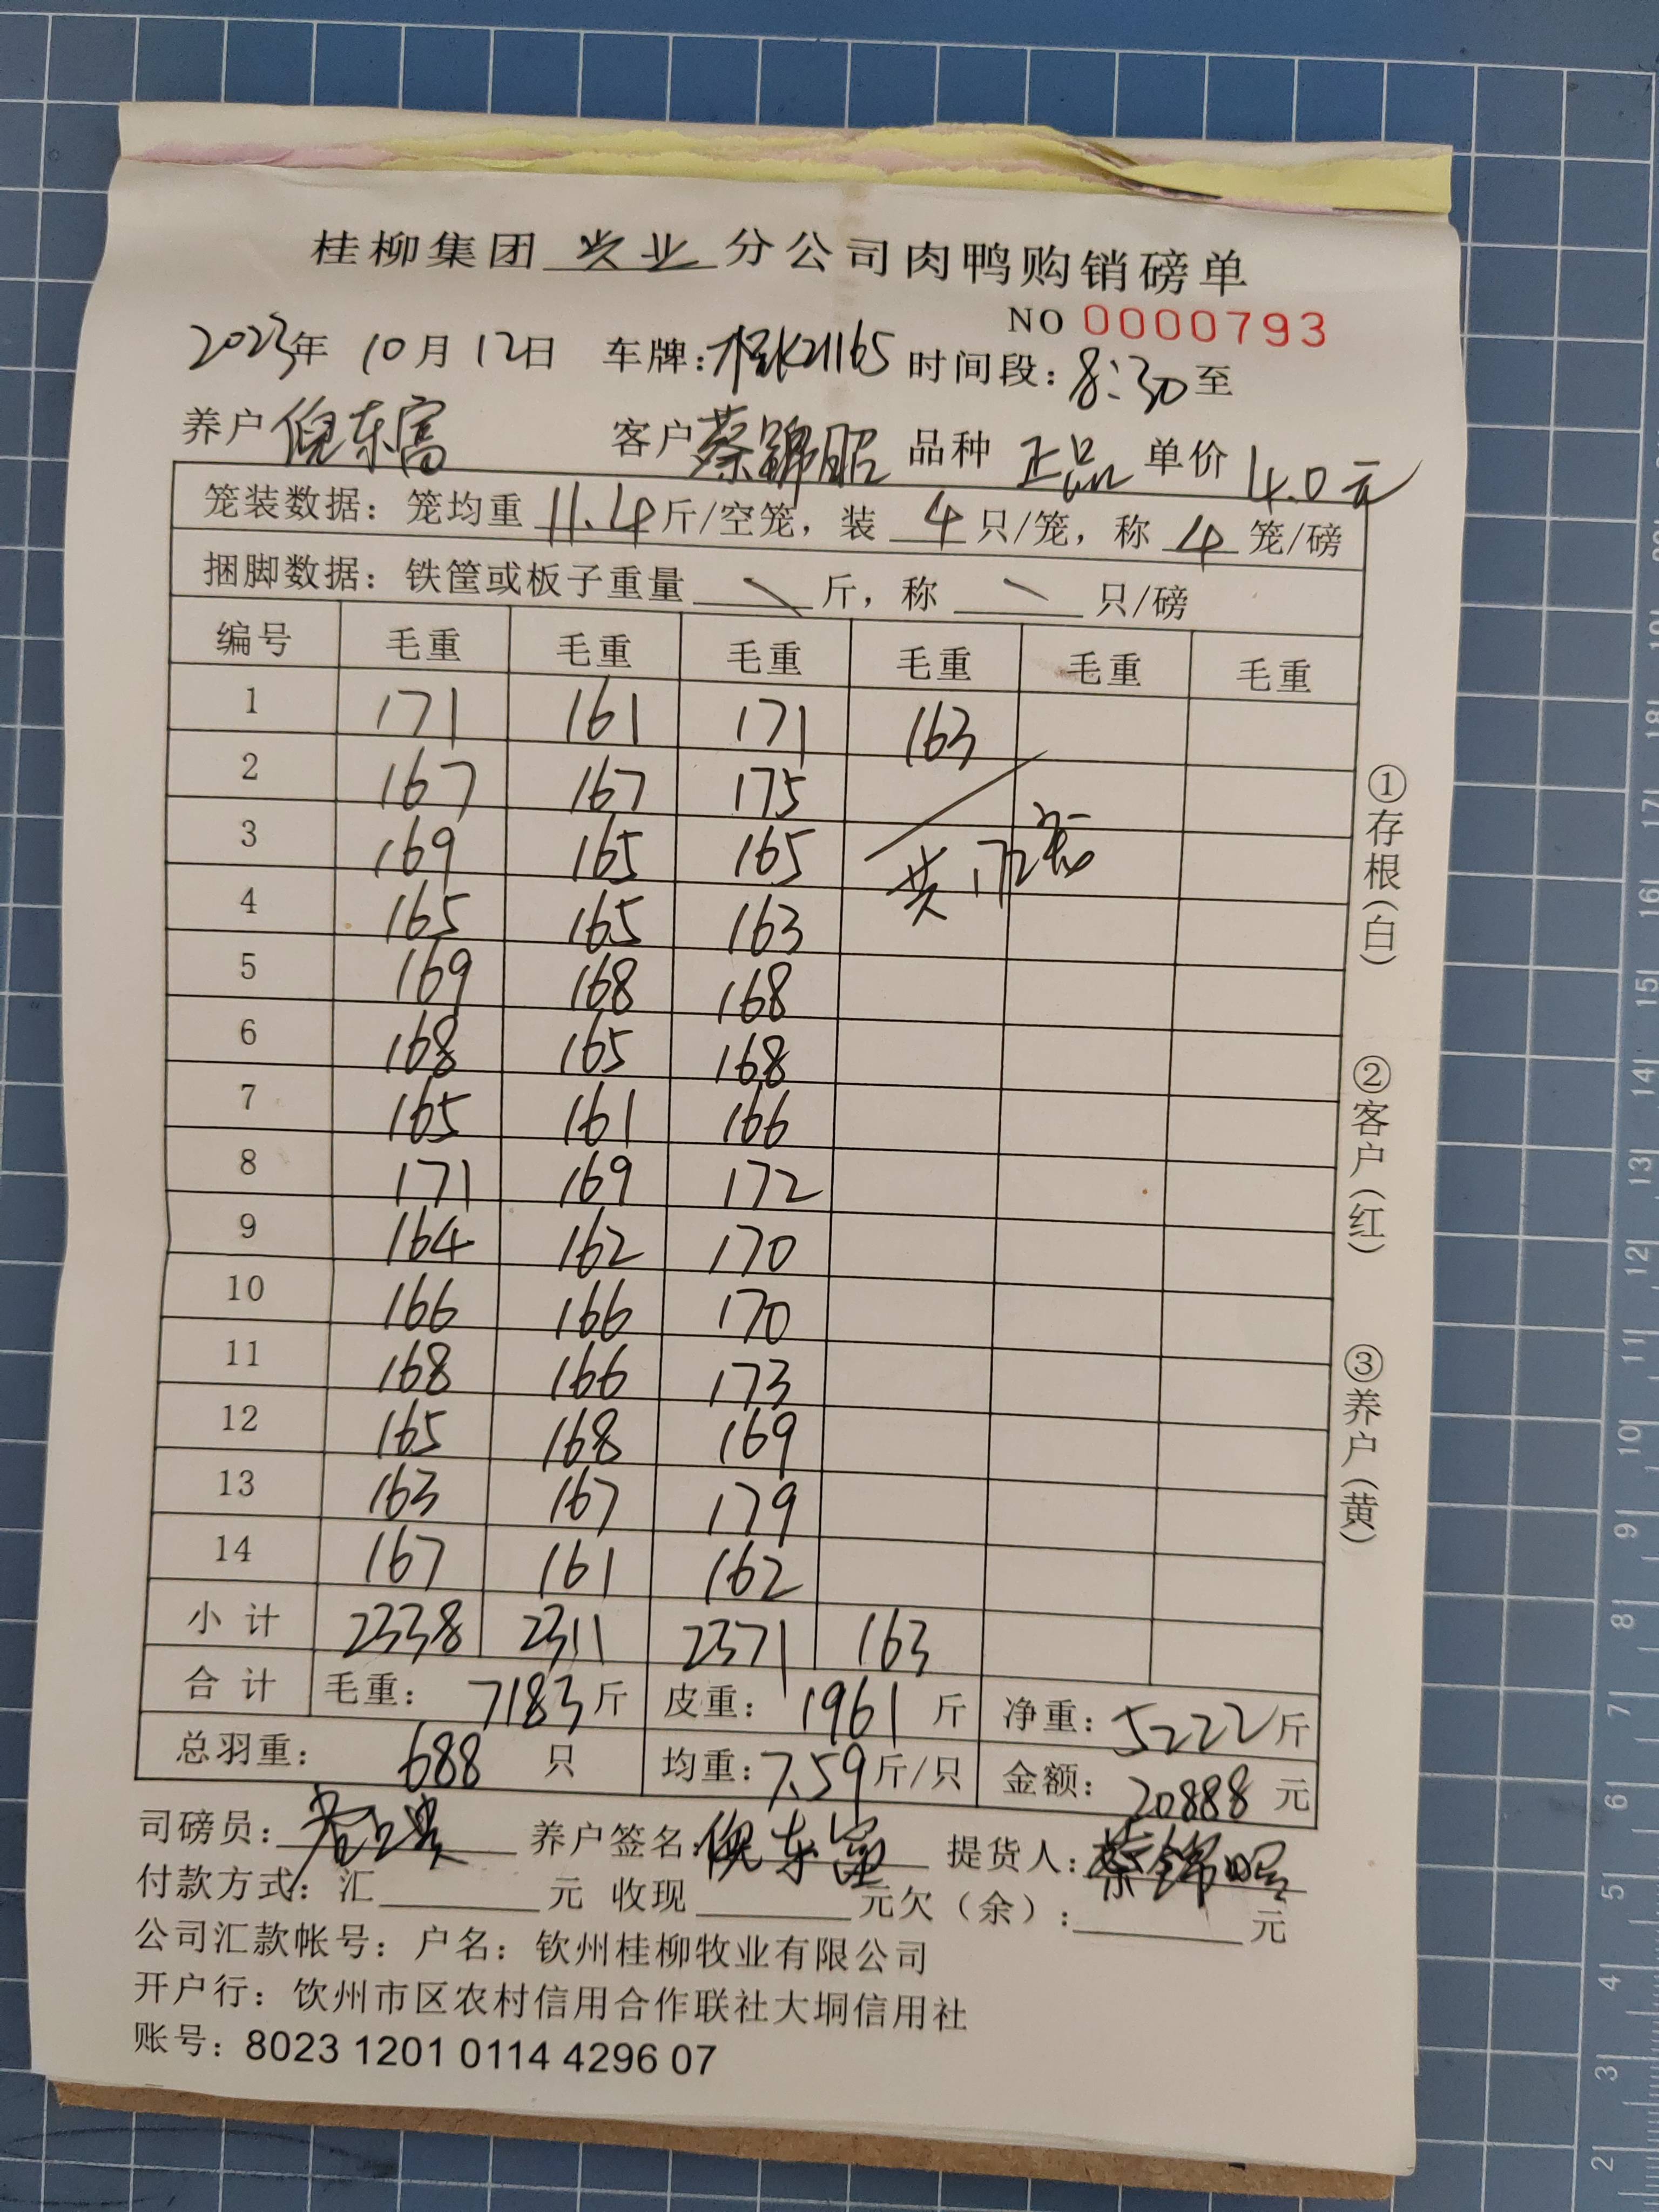 桂柳集团 兴业 分公司肉鸭购销磅单
NO 0000793
2023年 10月 12日 车牌:桂K21165 时间段:8:30至
养户 倪东富 客户 蔡锦昭 品种 正品 单价 4.0元
笼装数据:笼均重 11.4 斤/空笼,装 4 只/笼,称 4 笼/磅
捆脚数据:铁筐或板子重量 \ 斤,称 \ 只/磅
编号 毛重 毛重 毛重 毛重 毛重 毛重
1 171 161 171 163
2 167 167 175
3 169 165 165 共172笼
4 165 165 163
5 169 168 168
6 168 165 168
7 165 161 166
8 171 169 172
9 164 162 170
10 166 166 170
11 168 166 173
12 165 168 169
13 163 167 179
14 167 161 162
小计 2338 2311 2371 163
合计 毛重: 7183斤 皮重: 1961 斤 净重:5222斤
总羽重: 688 只 均重:7.59斤/只 金额: 20888 元
司磅员: 养户签名:倪东富 提货人:蔡锦昭
付款方式:汇 元 收现 元欠(余): 元
公司汇款帐号:户名:钦州桂柳牧业有限公司
开户行:饮州市区农村信用合作联社大垌信用社
账号:8023 1201 0114 4296 07
①存根(白)
②客户(红)
③养户(黄)
2 3 4 5 6 7 8 9 10 11 12 13 14 15 16 17 18 19